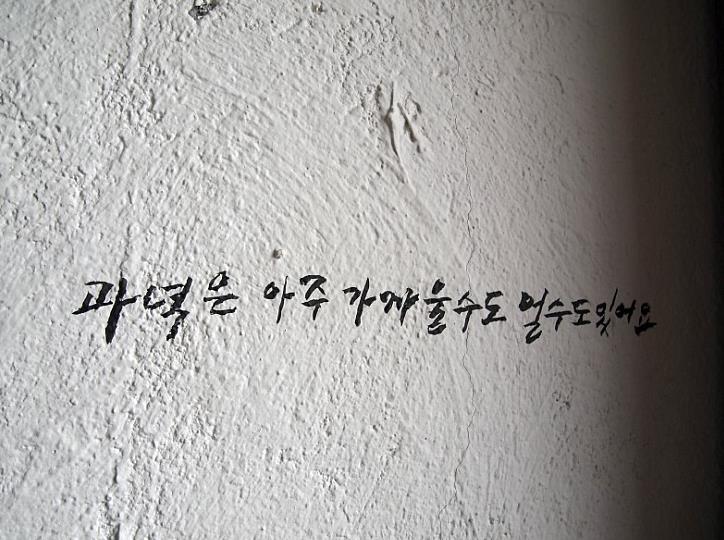 과녁은 아주 가까울수도 멀수도있어요